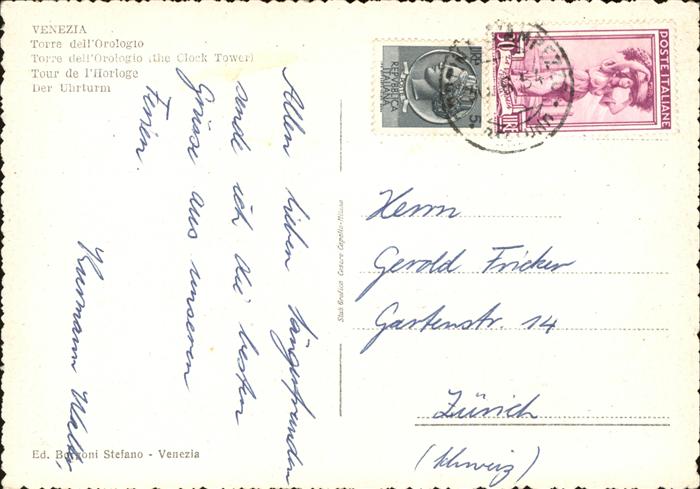 VENEZIA
Torre dell'Orologio
Torre dell'Orologio (the Clock Tower)
Tour de l'Horloge
Der Uhrturm
Allen lieben Sängerfreunden
sende ich die besten
Grüsse aus unseren
Ferien.
Hermann
Ed. Borgoni Stefano - Venezia
Stab. Grafico Cesare Capello-Milano
REPUBBLICA
ITALIANA
5
POSTE ITALIANE
20
LIRE
Herrn
Gerold Fricker
Gartenstr. 14
Zürich
(Schweiz)